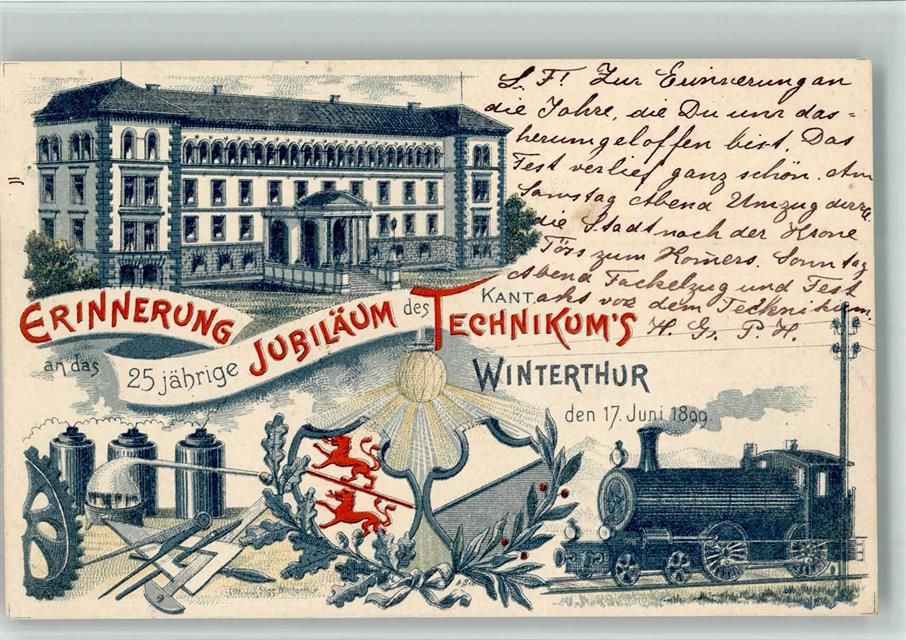 L. F! Zur Erinnerung an
die Jahre, die Du uns das-
herumgeloffen bist. Das
Fest verlief ganz schön. Am
Samstag Abend Umzug durch
die Stadt nach der Krone
Töss zum Komers. Sonntag
Abend Fackelzug und Fest
akt vor dem Technikum.
H. Gr. P. H.
ERINNERUNG
an das
25 jährige JUBILÄUM des KANT. TECHNIKUM'S
WINTERTHUR
den 17. Juni 1899
Winterthur